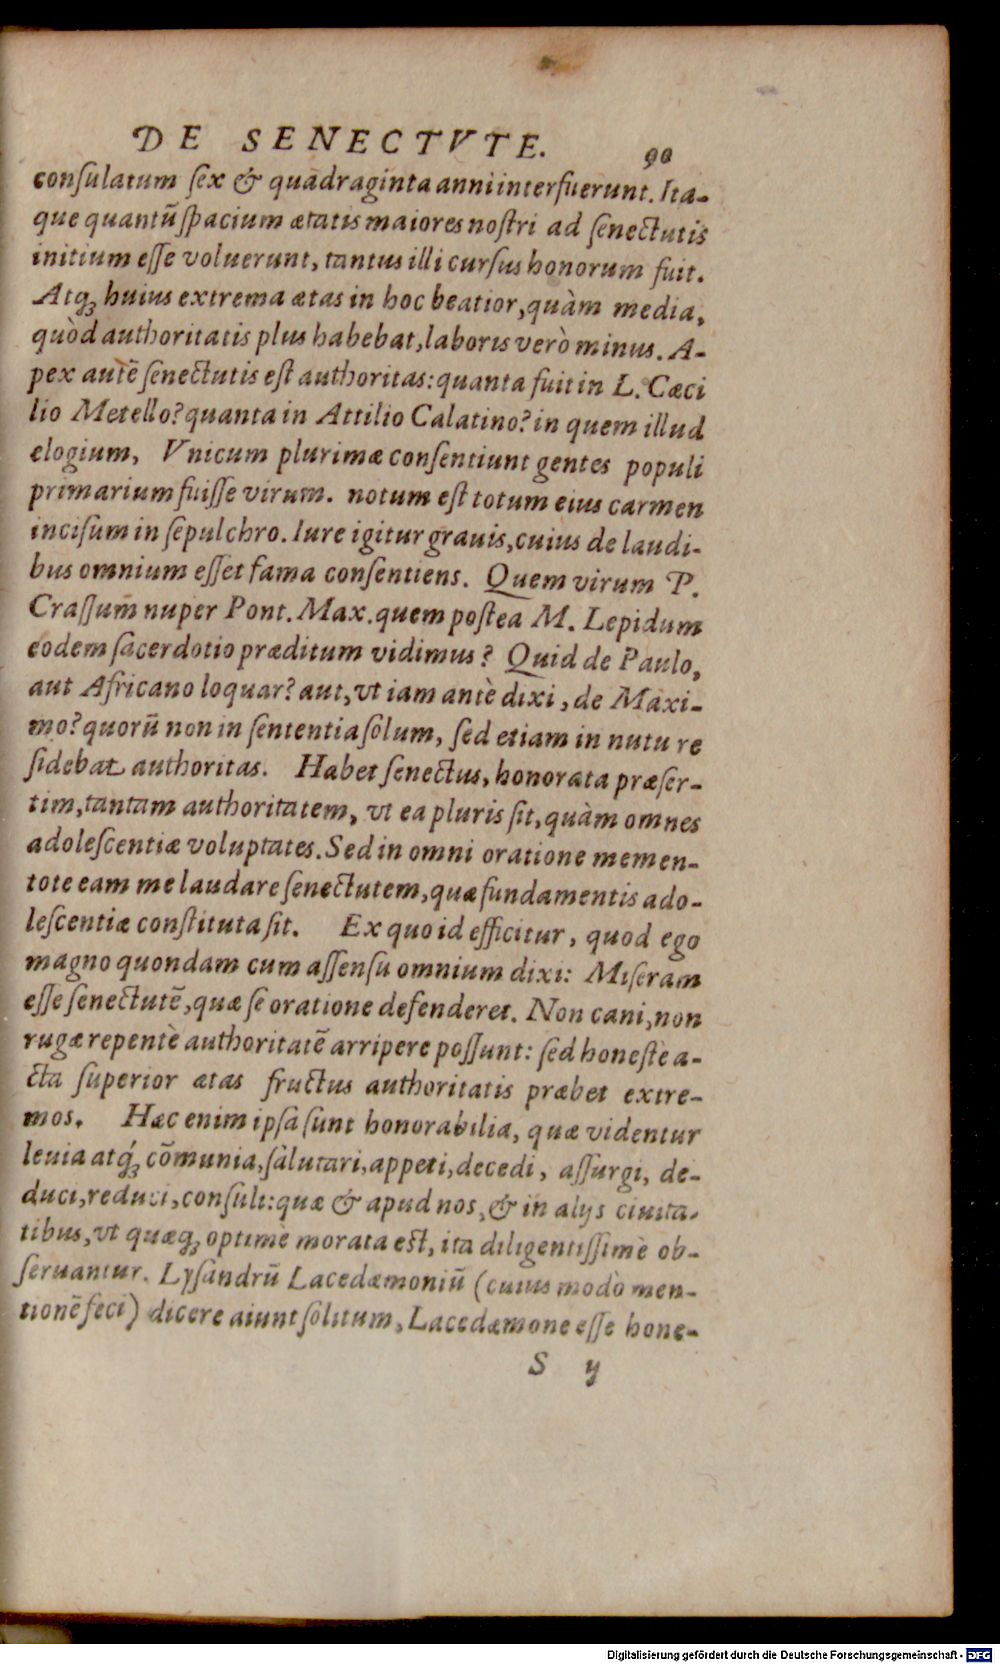 DE SENECTVTE.
90
conſulatum ſex & quadraginta anni interfuerunt. Ita-
que quantũ ſpacium ætatis maiores noſtri ad ſenectutis
initium eſſe voluerunt, tantus illi curſus honorum fuit.
Atq; huius extrema ætas in hoc beatior, quàm media,
quòd authoritatis plus habebat, laboris verò minus. A-
pex autẽ ſenectutis eſt authoritas: quanta fuit in L. Cæci
lio Metello? quanta in Attilio Calatino? in quem illud
elogium, Vnicum plurimæ conſentiunt gentes populi
primarium fuiſſe virum. notum eſt totum eius carmen
inciſum in ſepulchro. Iure igitur grauis, cuius de laudi-
bus omnium eſſet fama conſentiens. Quem virum P.
Craſſum nuper Pont. Max. quem poſtea M. Lepidum
eodem ſacerdotio præditum vidimus? Quid de Paulo,
aut Africano loquar? aut, vt iam antè dixi, de Maxi-
mo? quorũ non in ſententia ſolum, ſed etiam in nutu re
ſidebat authoritas. Habet ſenectus, honorata præſer-
tim, tantam authoritatem, vt ea pluris ſit, quàm omnes
adoleſcentiæ voluptates. Sed in omni oratione memen-
tote eam me laudare ſenectutem, quæ fundamentis ado-
leſcentiæ conſtituta ſit. Ex quo id efficitur, quod ego
magno quondam cum aſſenſu omnium dixi: Miſeram
eſſe ſenectutẽ, quæ ſe oratione defenderet. Non cani, non
rugæ repentè authoritatẽ arripere poſſunt: ſed honeſtè a-
cta ſuperior ætas fructus authoritatis præbet extre-
mos. Hæc enim ipſa ſunt honorabilia, quæ videntur
leuia atq́; cõmunia, ſalutari, appeti, decedi, aſſurgi, de-
duci, reduci, conſuli: quæ & apud nos, & in alijs ciuita-
tibus, vt quæq; optimè morata est, ita diligentiſſimè ob-
ſeruantur. Lyſandrũ Lacedæmoniũ (cuius modò men-
tionẽ feci) dicere aiunt ſolitum, Lacedæmone eſſe hone-
S ij
Digitalisierung gefördert durch die Deutsche Forschungsgemeinschaft - DFG